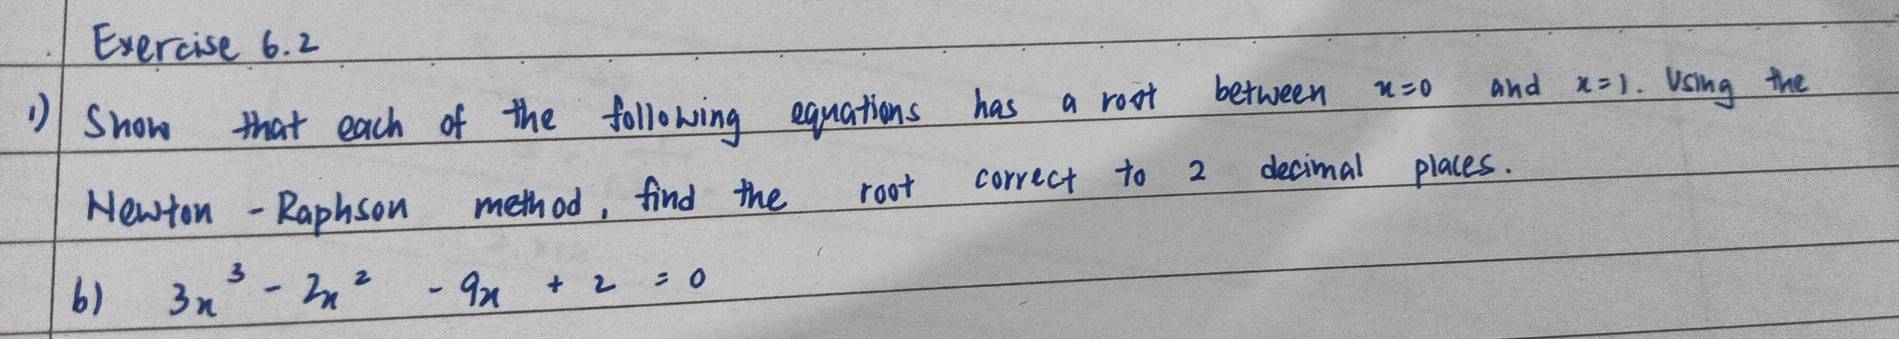 Exercise 6.2
1) Show that each of the following equations has a root between x=0 and x=1. Using the
Newton - Raphson method, find the root correct to 2 decimal places.
b) 3x³ - 2x² - 9x + 2 = 0